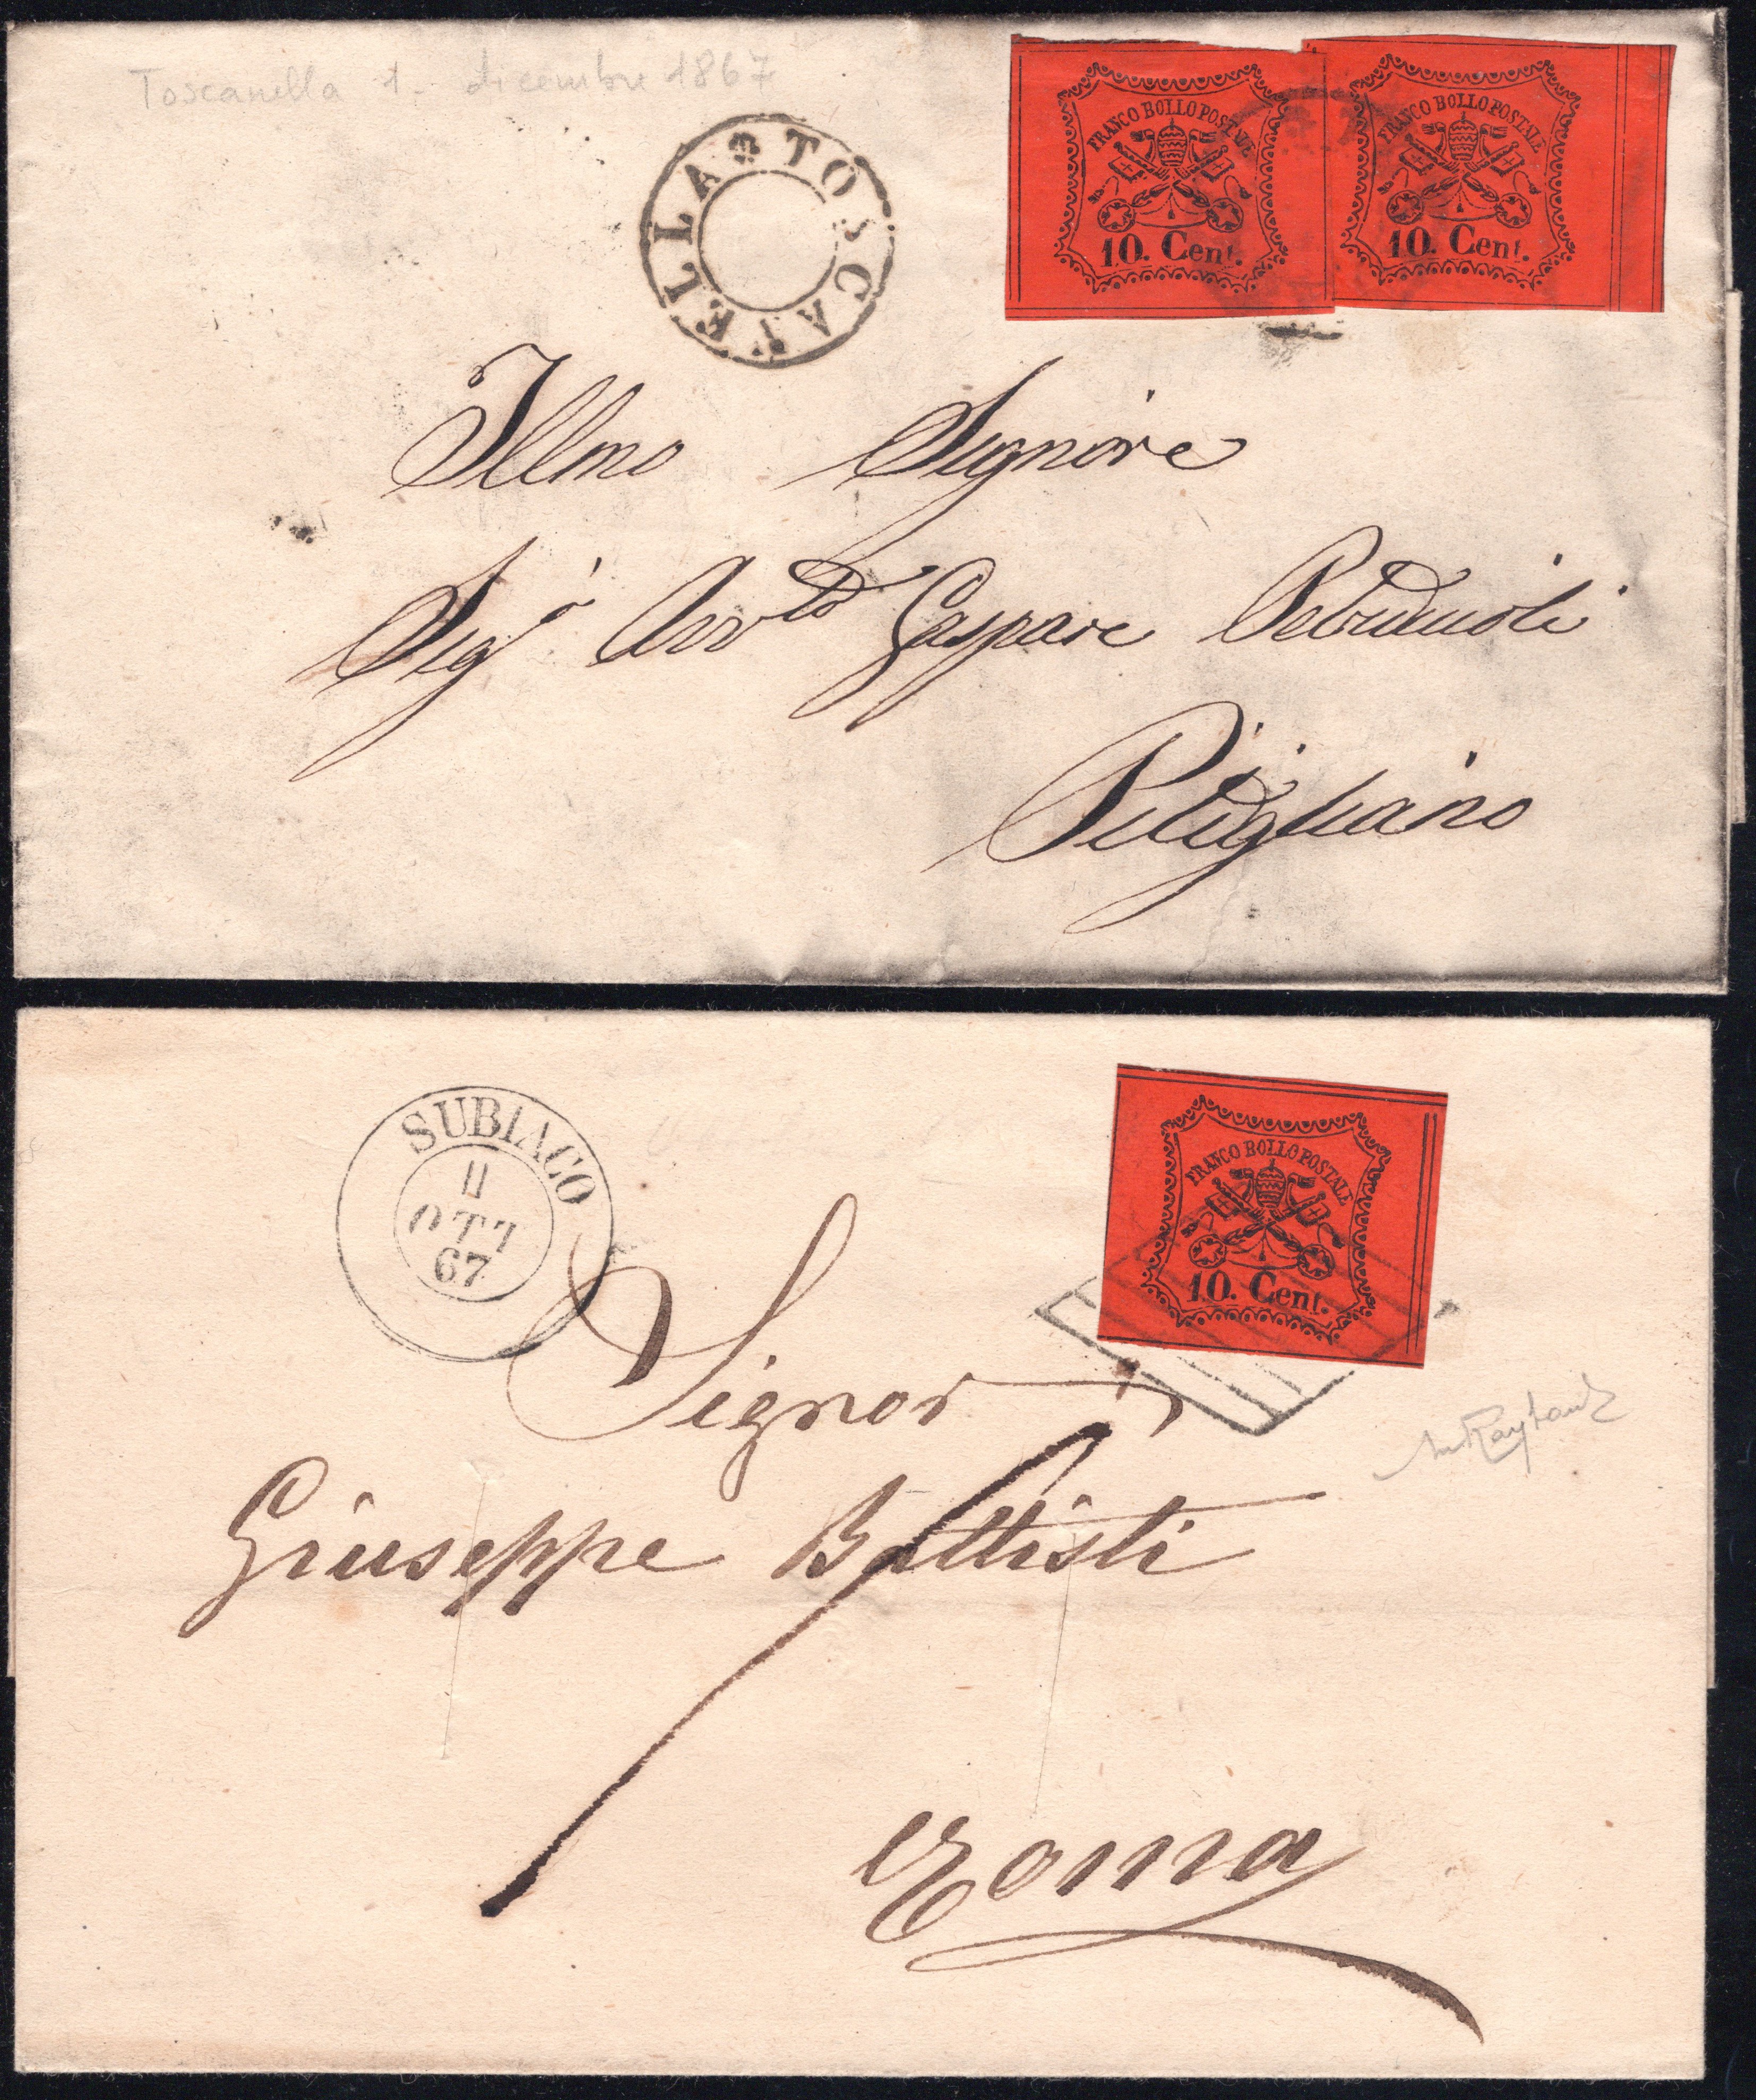 Toscanella 1 - dicembre 1867
TOSCANELLA
FRANCO BOLLO POSTALE
10. Cent.
FRANCO BOLLO POSTALE
10. Cent.
Illmo Signore
Sigr Avvto Gaspare
Pitigliano
SUBIACO
11
OTT
67
FRANCO BOLLO POSTALE
10. Cent.
Signor
Giuseppe Battisti
Roma